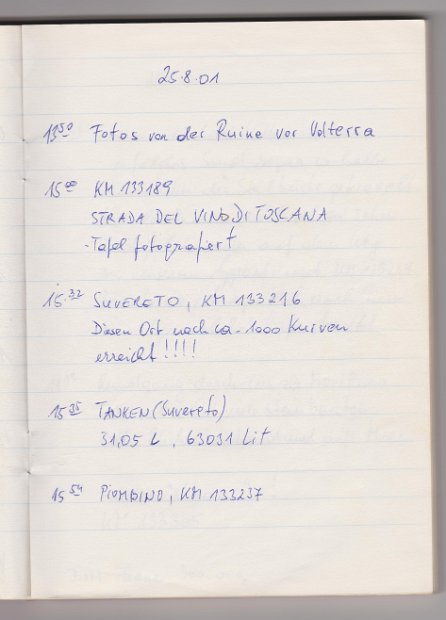 25.8.01
13 50 Fotos von der Ruine vor Volterra
15 00 KM 133189
STRADA DEL VINO DI TOSCANA
-Tafel fotografiert
15.32 SUVERETO, KM 133216
Diesen Ort nach ca. 1000 Kurven
erreicht!!!!
15 35 TANKEN (Suvereto)
31,05 L, 63031 Lit
15 54 PIOMBINO, KM 133237